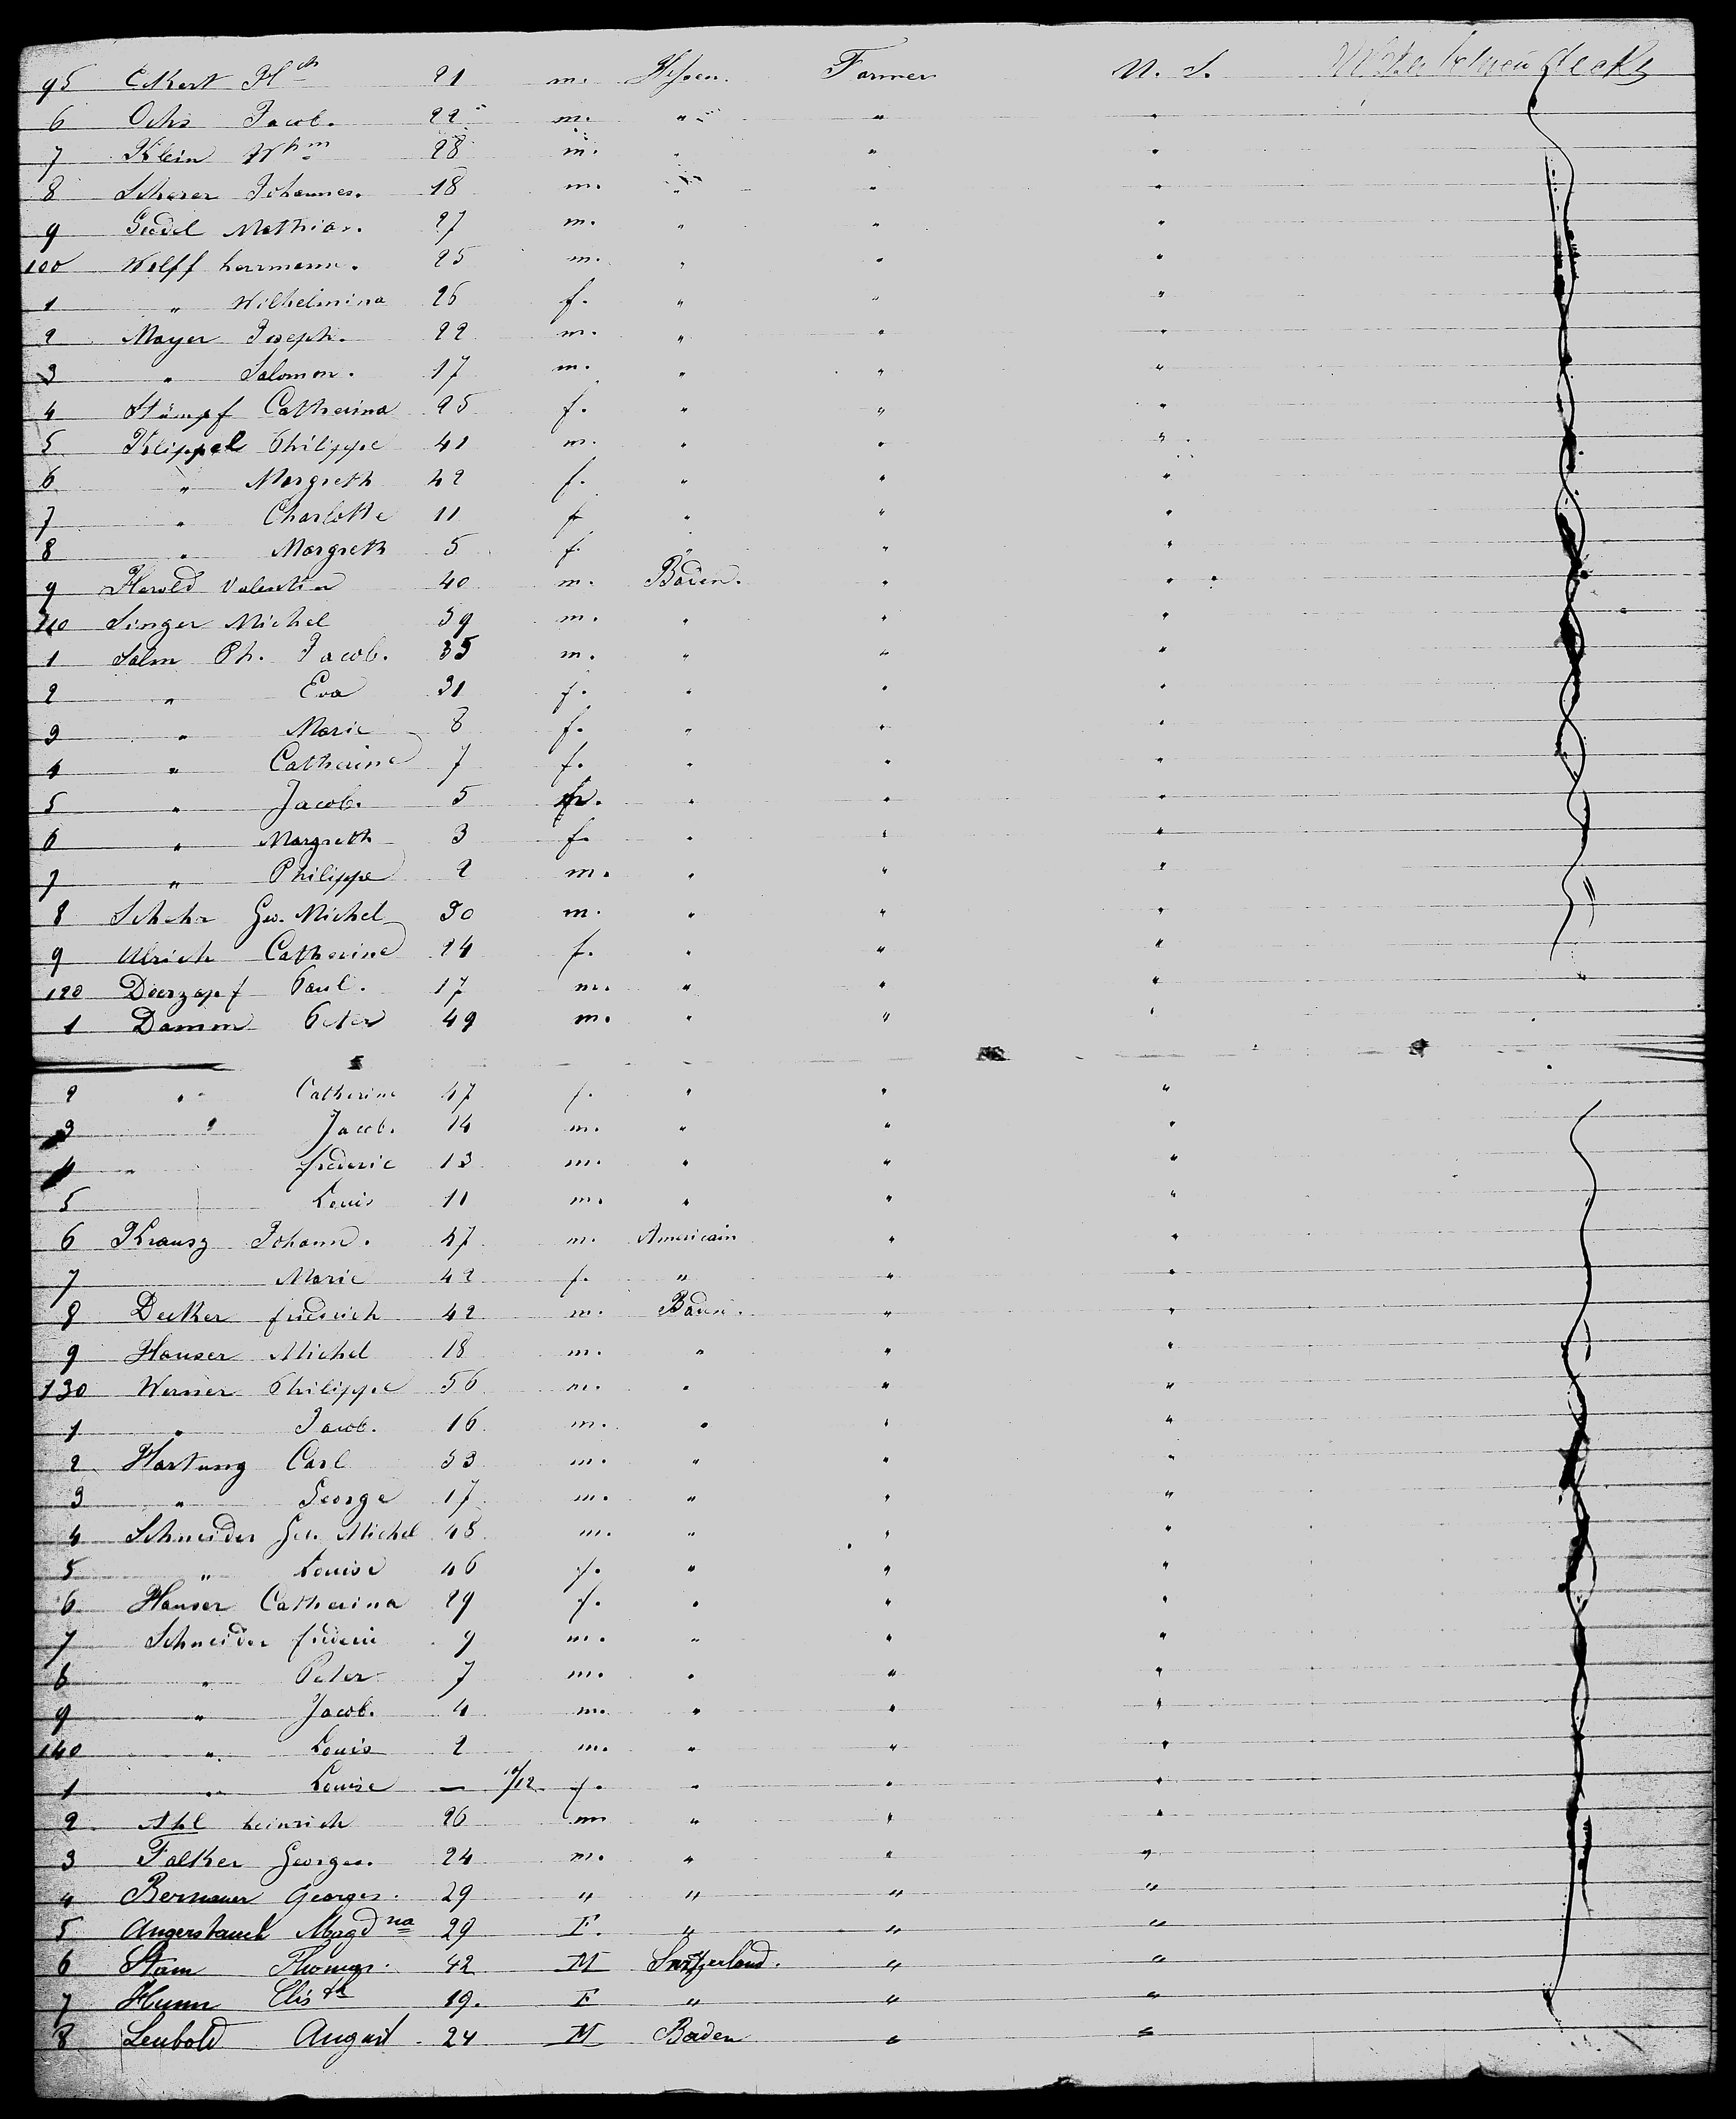 95 Eckert Hch 21 m. Hessen. Farmer U. S. Between decks
6 Ochs Jacob. 22 m. " " "
7 Klein Whm 28 m. " " "
8 Scherer Johannes. 18 m. " " "
9 Giedel Mathias. 27 m. " " "
100 Wolff herrmann. 25 m. " " "
1 " Wilhelmina 26 f. " " "
2 Mayer Joseph. 22 m. " " "
3 " Salomon. 17 m. " " "
4 Stümpf Catherina 25 f. " " "
5 Klippel Philippe 41 m. " " "
6 " Margreth 42 f. " " "
7 " Charlotte 11 f " " "
8 " Margreth 5 f. " " "
9 Herold Valentin 40 m. Baden. " "
110 Singer Michel 39 m. " " "
1 Salm Ph. Jacob. 35 m. " " "
2 " Eva 31 f. " " "
3 " Marie 8 f. " " "
4 " Catherine 7 f. " " "
5 " Jacob. 5 m. " " "
6 " Margreth 3 f. " " "
7 " Philippe 2 m. " " "
8 Schehr Geo. Michel 30 m. " " "
9 Ulrich Catherine 24 f. " " "
120 Doerzapf Paul. 17 m. " " "
1 Damm Peter 49 m. " " "
2 " Catherine 47 f. " " "
3 " Jacob. 14 m. " " "
4 " frederic 13 m. " " "
5 Louis 11 m. " " "
6 Krausz Johann. 47 m. Americain " "
7 Marie 42 f. " " "
8 Decker friedrich 42 m. Baden. " "
9 Hauser Michel 18 m. " " "
130 Werner Philippe 56 m. " " "
1 " Jacob. 16 m. " " "
2 Hartung Carl 53 m. " " "
3 " George 17 m. " " "
4 Schneider Geo. Michel 48 m. " " "
5 " Louise 46 f. " " "
6 Hauser Catherina 29 f. " " "
7 Schneider frederic 9 m. " " "
8 " Peter 7 m. " " "
9 " Jacob. 4 m. " " "
140 " Louis 2 m. " " "
1 " Louise — 10/12 f. " " "
2 Ahl heinrich 26 m " " "
3 Falker Georges. 24 m. " " "
4 Bernauer Georges. 29 " " " "
5 Angerstauch Magdna 29 F. " " "
6 Stam Thomas. 42 M Switzerland. " "
7 Hunn Elisth 19. F " " "
8 Leubold August 24 M Baden " "